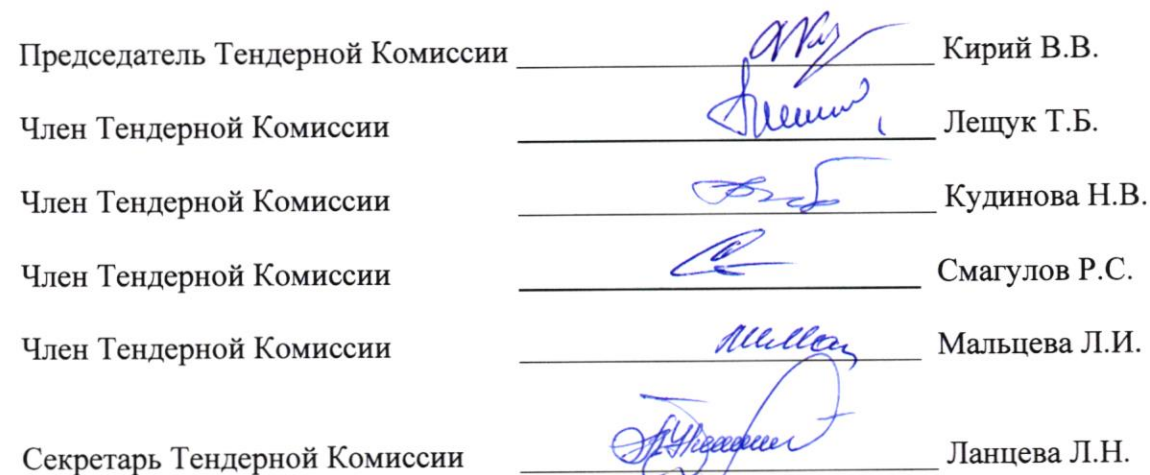 Председатель Тендерной Комиссии Кирий В.В.
Член Тендерной Комиссии Лещук Т.Б.
Член Тендерной Комиссии Кудинова Н.В.
Член Тендерной Комиссии Смагулов Р.С.
Член Тендерной Комиссии Мальцева Л.И.
Секретарь Тендерной Комиссии Ланцева Л.Н.